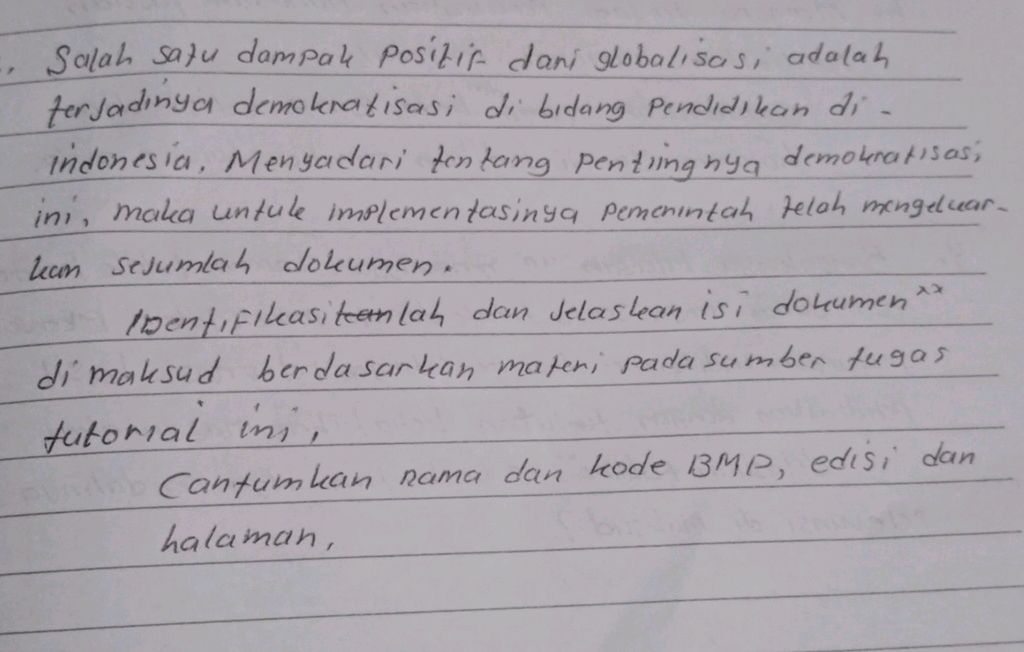 . Salah satu dampak positif dari globalisasi adalah
terjadinya demokratisasi di bidang Pendidikan di -
indonesia. Menyadari tentang pentiingnya demokratisasi
ini, maka untuk implementasinya pemerintah telah mengeluar-
kan sejumlah dokumen.
Identifikasikanlah dan Jelaskan isi dokumen xx
di maksud berdasarkan materi pada sumber tugas
tutorial ini,
Cantumkan nama dan kode BMP, edisi dan
halaman,